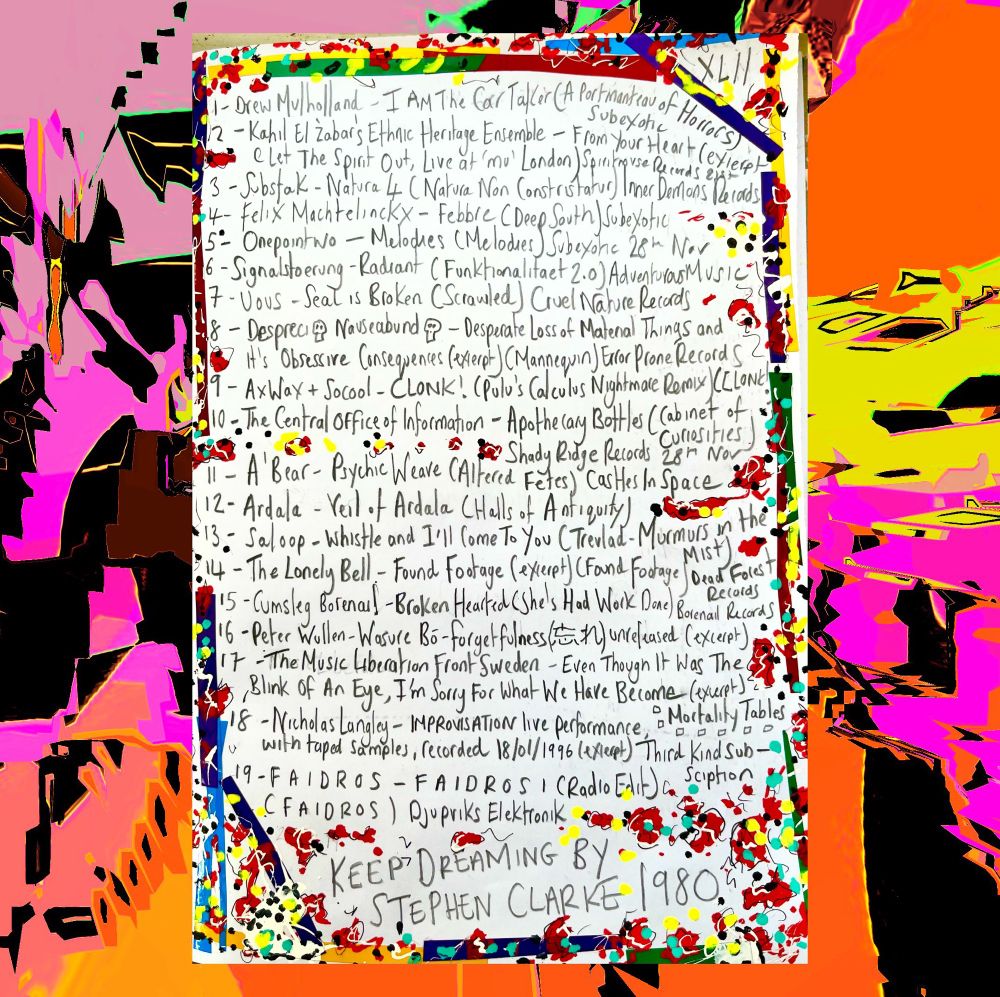 XLII
1- Drew Mulholland - I Am The Car Tailor (A Portmanteau of Horrors)
Subexotic
2 - Kahil El Zabar's Ethnic Heritage Ensemble - From Your Heart (exerpt
(Let The Spirit Out, Live at 'mu' London) Spiritmuse Records 21st
3 - Substak - Natura 4 (Natura Non Constristatur) Inner Demons Records
4- Felix Machtelinckx - Febbre (Deep South) Subexotic
5- Onepointwo - Melodies (Melodies) Subexotic 28th Nov
6 - Signalstoerung - Radiant (Funktionalitaet 2.0) Adventurous Music
7 - Vous - Seal is Broken (Scrawled) Cruel Nature Records
8 - Despreci Nauseabund - Desperate Loss of Material Things and
it's Obsessive Consequences (exerpt) (Mannequin) Error Prone Records
9 - AxWax + Socool - CLONK! (Pulu's Calculus Nightmare Remix) (CLONK)
10 - The Central Office of Information - Apothecary Bottles (Cabinet of
Curiosities)
Shady Ridge Records 28th Nov
11 - A'Bear - Psychic Weave (Altered Fêtes) Castles In Space
12 - Ardala - Veil of Ardala (Halls of Antiquity)
13 - Saloop - Whistle and I'll Come To You (Trevlad - Murmurs in the
Mist)
14 - The Lonely Bell - Found Footage (exerpt) (Found Footage) Dead Forest
Records
15 - Cumsleg Borenail - Broken Hearted (She's Had Work Done) Borenail Records
16 - Peter Wullen - Wasure Bō - forgetfulness (忘れ) unreleased (exerpt)
17 - The Music Liberation Front Sweden - Even Though It Was The
Blink Of An Eye, I'm Sorry For What We Have Become (exerpt)
Mortality Tables
18 - Nicholas Langley - IMPROVISATION live performance,
with taped samples, recorded 18/01/1996 (exerpt) Third Kind Sub-
sciption
19 - FAIDROS - FAIDROS 1 (Radio Edit)
(FAIDROS) Djupviks Elektronik
KEEP DREAMING BY
STEPHEN CLARKE 1980